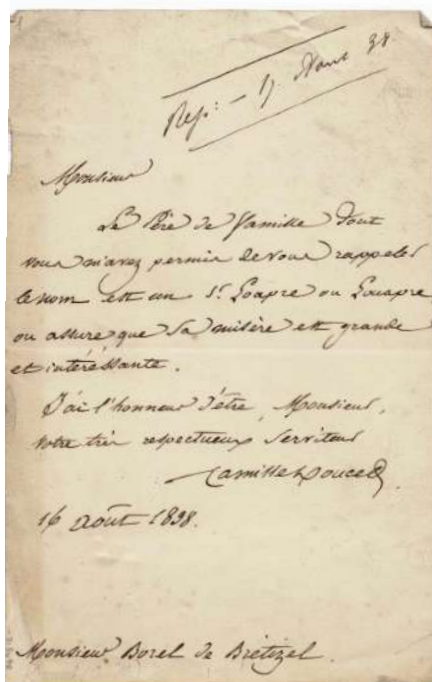 Rep: - 17. Aout 38.
Monsieur
Le Père de famille dont
vous m'avez permis de vous rappeler
le nom est un Sr. Loapre ou Louapre
on assure que sa misère est grande
et intéressante.
J'ai l'honneur d'être, Monsieur,
votre très respectueux Serviteur
Camille Doucet
16 Août 1838.
Monsieur Borel de Brétizel.